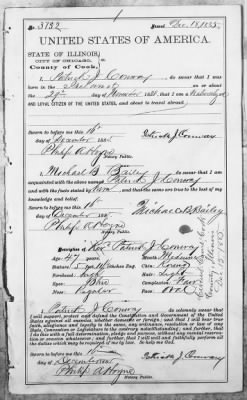 No. 3722 Issued Dec. 18, 1885
UNITED STATES OF AMERICA.
STATE OF ILLINOIS,
CITY OF CHICAGO, ss.
County of Cook,
I, Patrick J. Conway do swear that I was
born in the Ireland on or about the
29th day of 18 that I am a
AND LOYAL CITIZEN OF THE UNITED STATES, and about to travel abroad.
Sworn to before me this 16th
day of December 1885 Patrick J. Conway
Philip A. Hoyne
Notary Public.
I, Michael B. Bailey do swear that I am
acquainted with the above named Patrick J. Conway and with the
facts stated by him and that the same are true to the best of my
knowledge and belief.
Sworn to before me this 16th
day of December 1885 Michael B. Bailey
Philip A. Hoyne
Notary Public.
Description of Rev. Patrick J. Conway
Age: 47 years Mouth: Medium
Stature: 5 feet inches Eng. Chin: Round
Forehead: Hair: Light
Eyes: Blue Complexion: Fair
Nose: Regular Face: Oval
I, Patrick J. Conway do solemnly swear that
I will support, protect and defend the Constitution and Government of the United
States against all enemies, whether domestic or foreign; and that I will bear true
faith, allegiance and loyalty to the same, any ordinance, resolution or law of any
State, Convention or Legislature to the contrary notwithstanding; and further, that
I do this with a full determination, pledge and purpose, without any mental reservation
or evasion whatsoever; and further, that I will well and faithfully perform all the
duties which may be required of me by law. So help me God.
Sworn to before me this 16th
day of December 1885 Patrick J. Conway
Philip A. Hoyne
Notary Public.